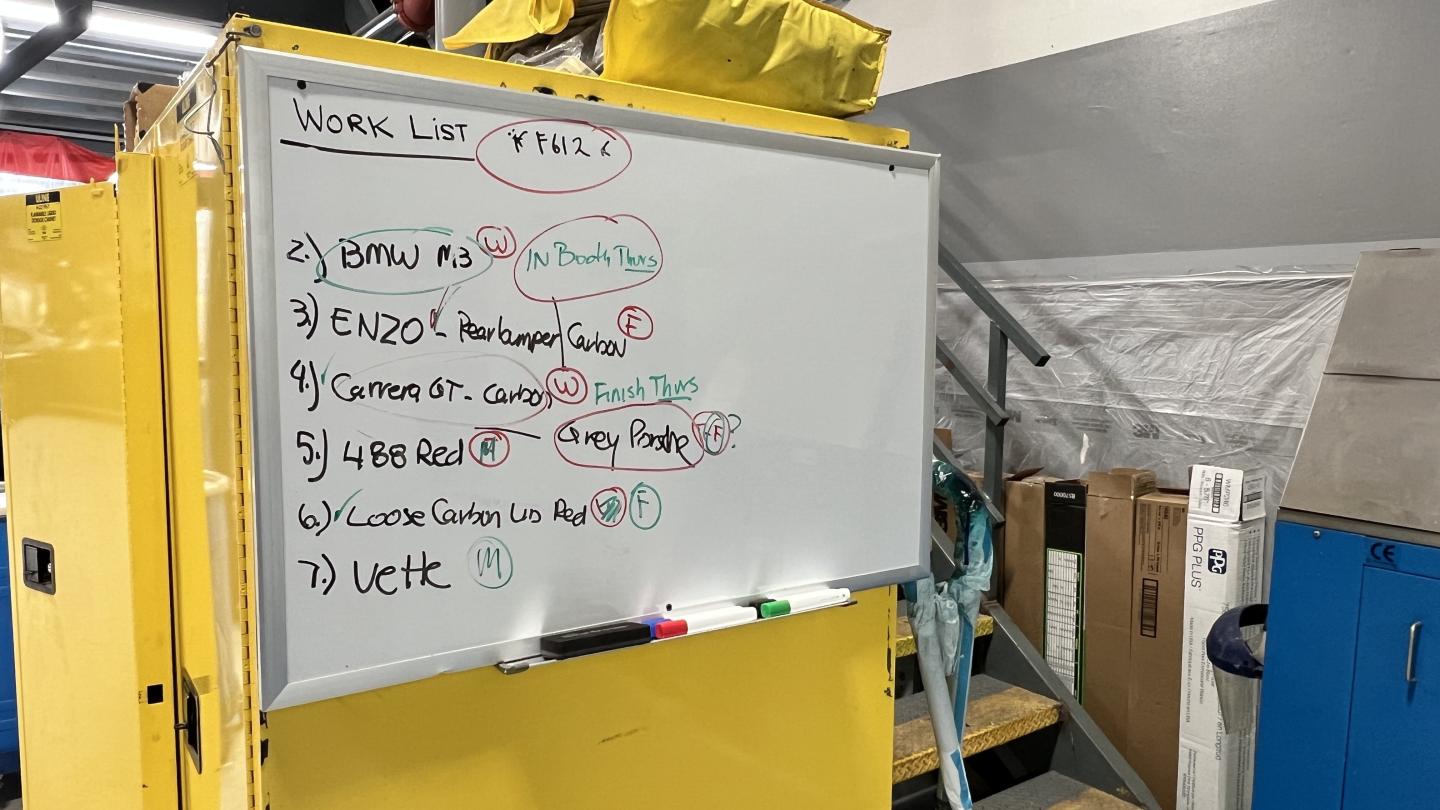 WORK LIST * F612 *
2.) BMW M3 W IN Booth Thurs
3.) ENZO - Rear bumper Carbon F
4.) Carrera GT - Carbon W Finish Thurs
5.) 488 Red M Grey Porsche F ?
6.) Loose Carbon Red F
7.) Vette M
ULINE
PPG
PPG PLUS
CE